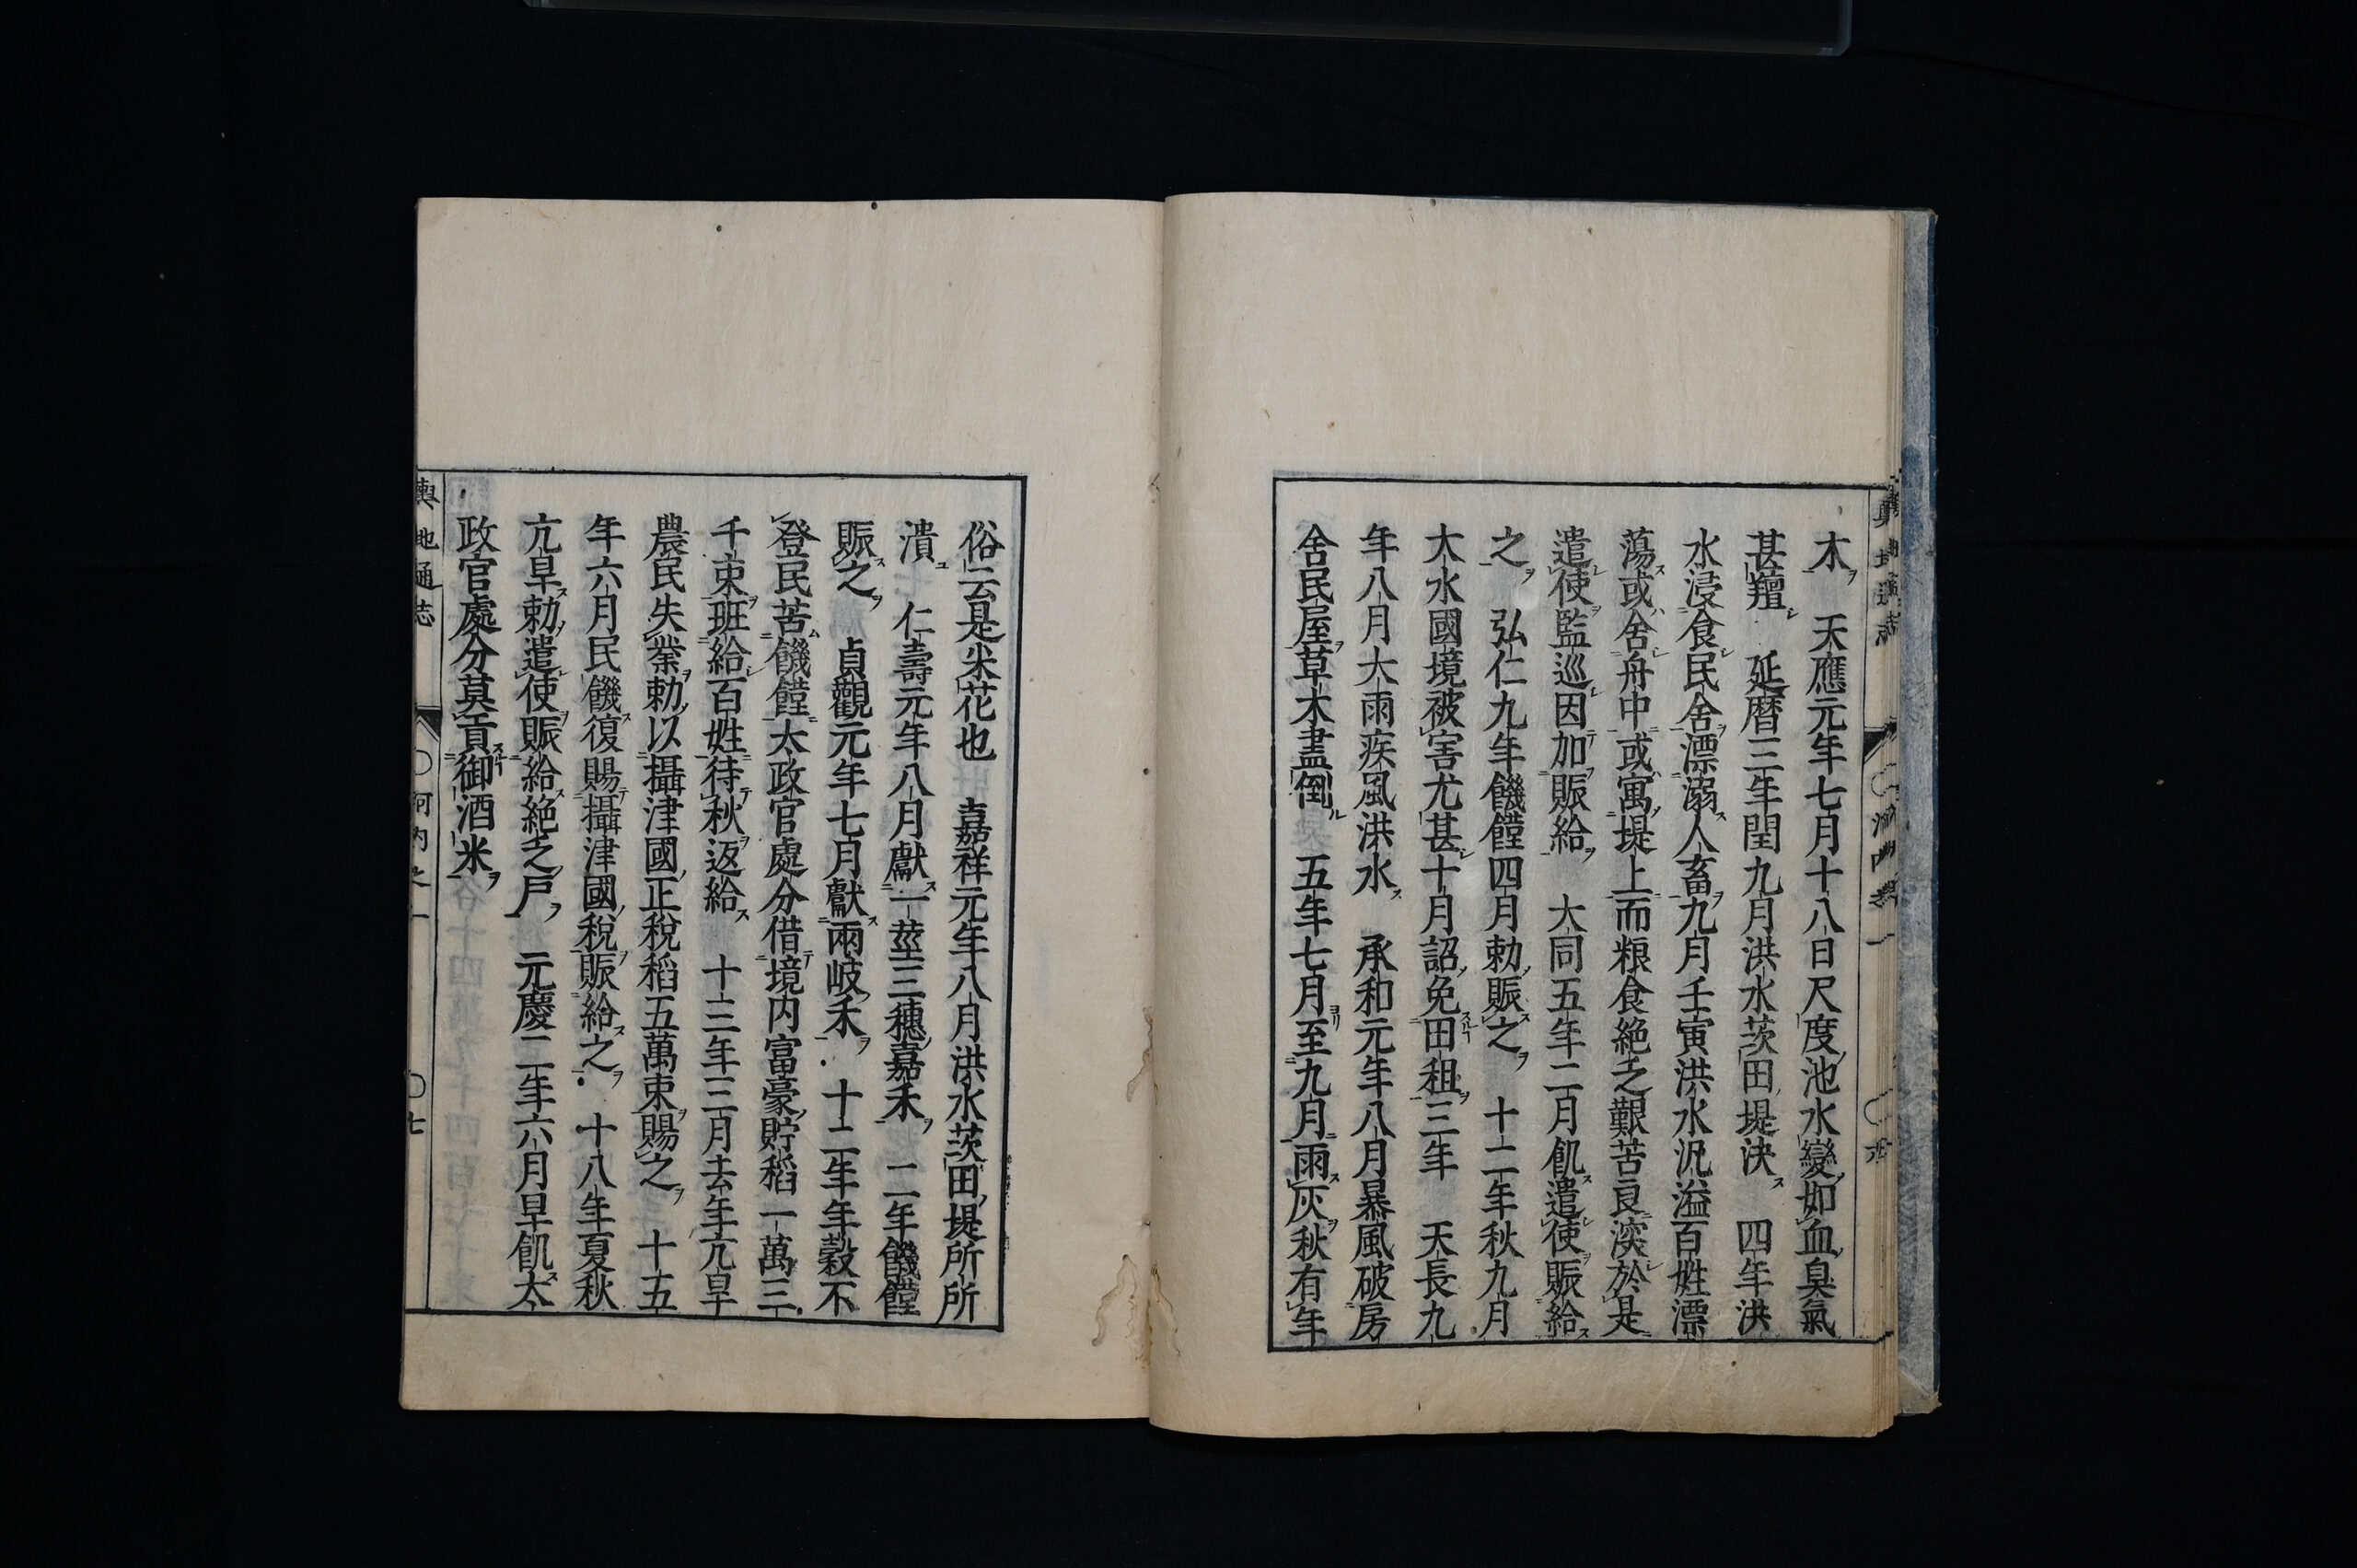 木 天應元年七月十八日尺度池水變如血臭氣
甚羶 延暦三年閏九月洪水茨田堤決 四年洪
水浸食民舎漂溺人畜九月壬寅洪水汎溢百姓漂
蕩或舎舟中或寓堤上而粮食絶乏艱苦良深於是
遣使監巡因加賑給 大同五年二月飢遣使賑給
之 弘仁九年饑饉四月勅賑之 十二年秋九月
大水國境被害尤甚十月詔免田租三年 天長九
年八月大雨疾風洪水 承和元年八月暴風破房
舎民屋草木盡倒 五年七月至九月雨灰秋有年
俗云是米花也 嘉祥元年八月洪水茨田堤所所
潰 仁壽元年八月獻一莖三穗嘉禾 二年饑饉
賑之 貞觀元年七月獻兩岐禾 十二年年穀不
登民苦饑饉太政官處分借境内富豪貯稻一萬三
千束班給百姓待秋返給 十三年三月去年亢旱
農民失業勅以攝津國正税稻五萬束賜之 十五
年六月民饑復賜攝津國税賑給之 十八年夏秋
亢旱勅遣使賑給絶乏戸 元慶二年六月旱飢太
政官處分莫責御酒米
輿地通志 〇河内之一 〇七